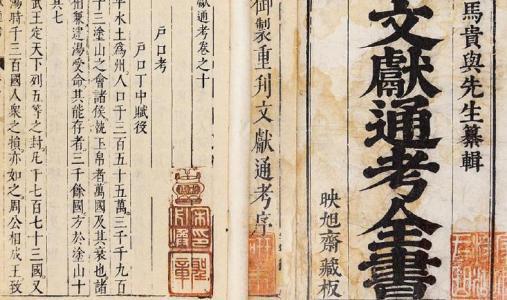 馬貴與先生纂輯
文獻通考全書
映旭齋藏板
御製重刊文獻通考序
獻通考卷之十
戶口考
戶口丁中賦役
平水土爲州人口千三百五十五萬三千九百
十三塗山之會諸侯執玉帛者萬國及其衰也諸
兼逮湯受命其能存者三千餘國方於塗山十
其七
武王定天下列五等之封凡千七百七十三國又
湯時千三百國人衆之損亦如之周公相成王致